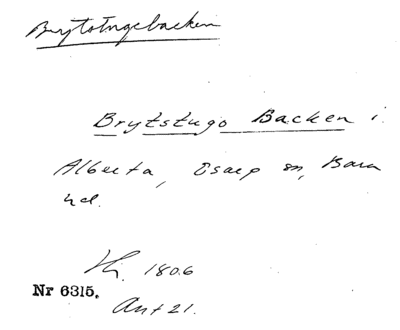 Brytstugebacken
Brytstugo Backen i
Alberta, Esarp sn, Bara
hd.
Hi. 1806
Nr 6315.
Ant 21.